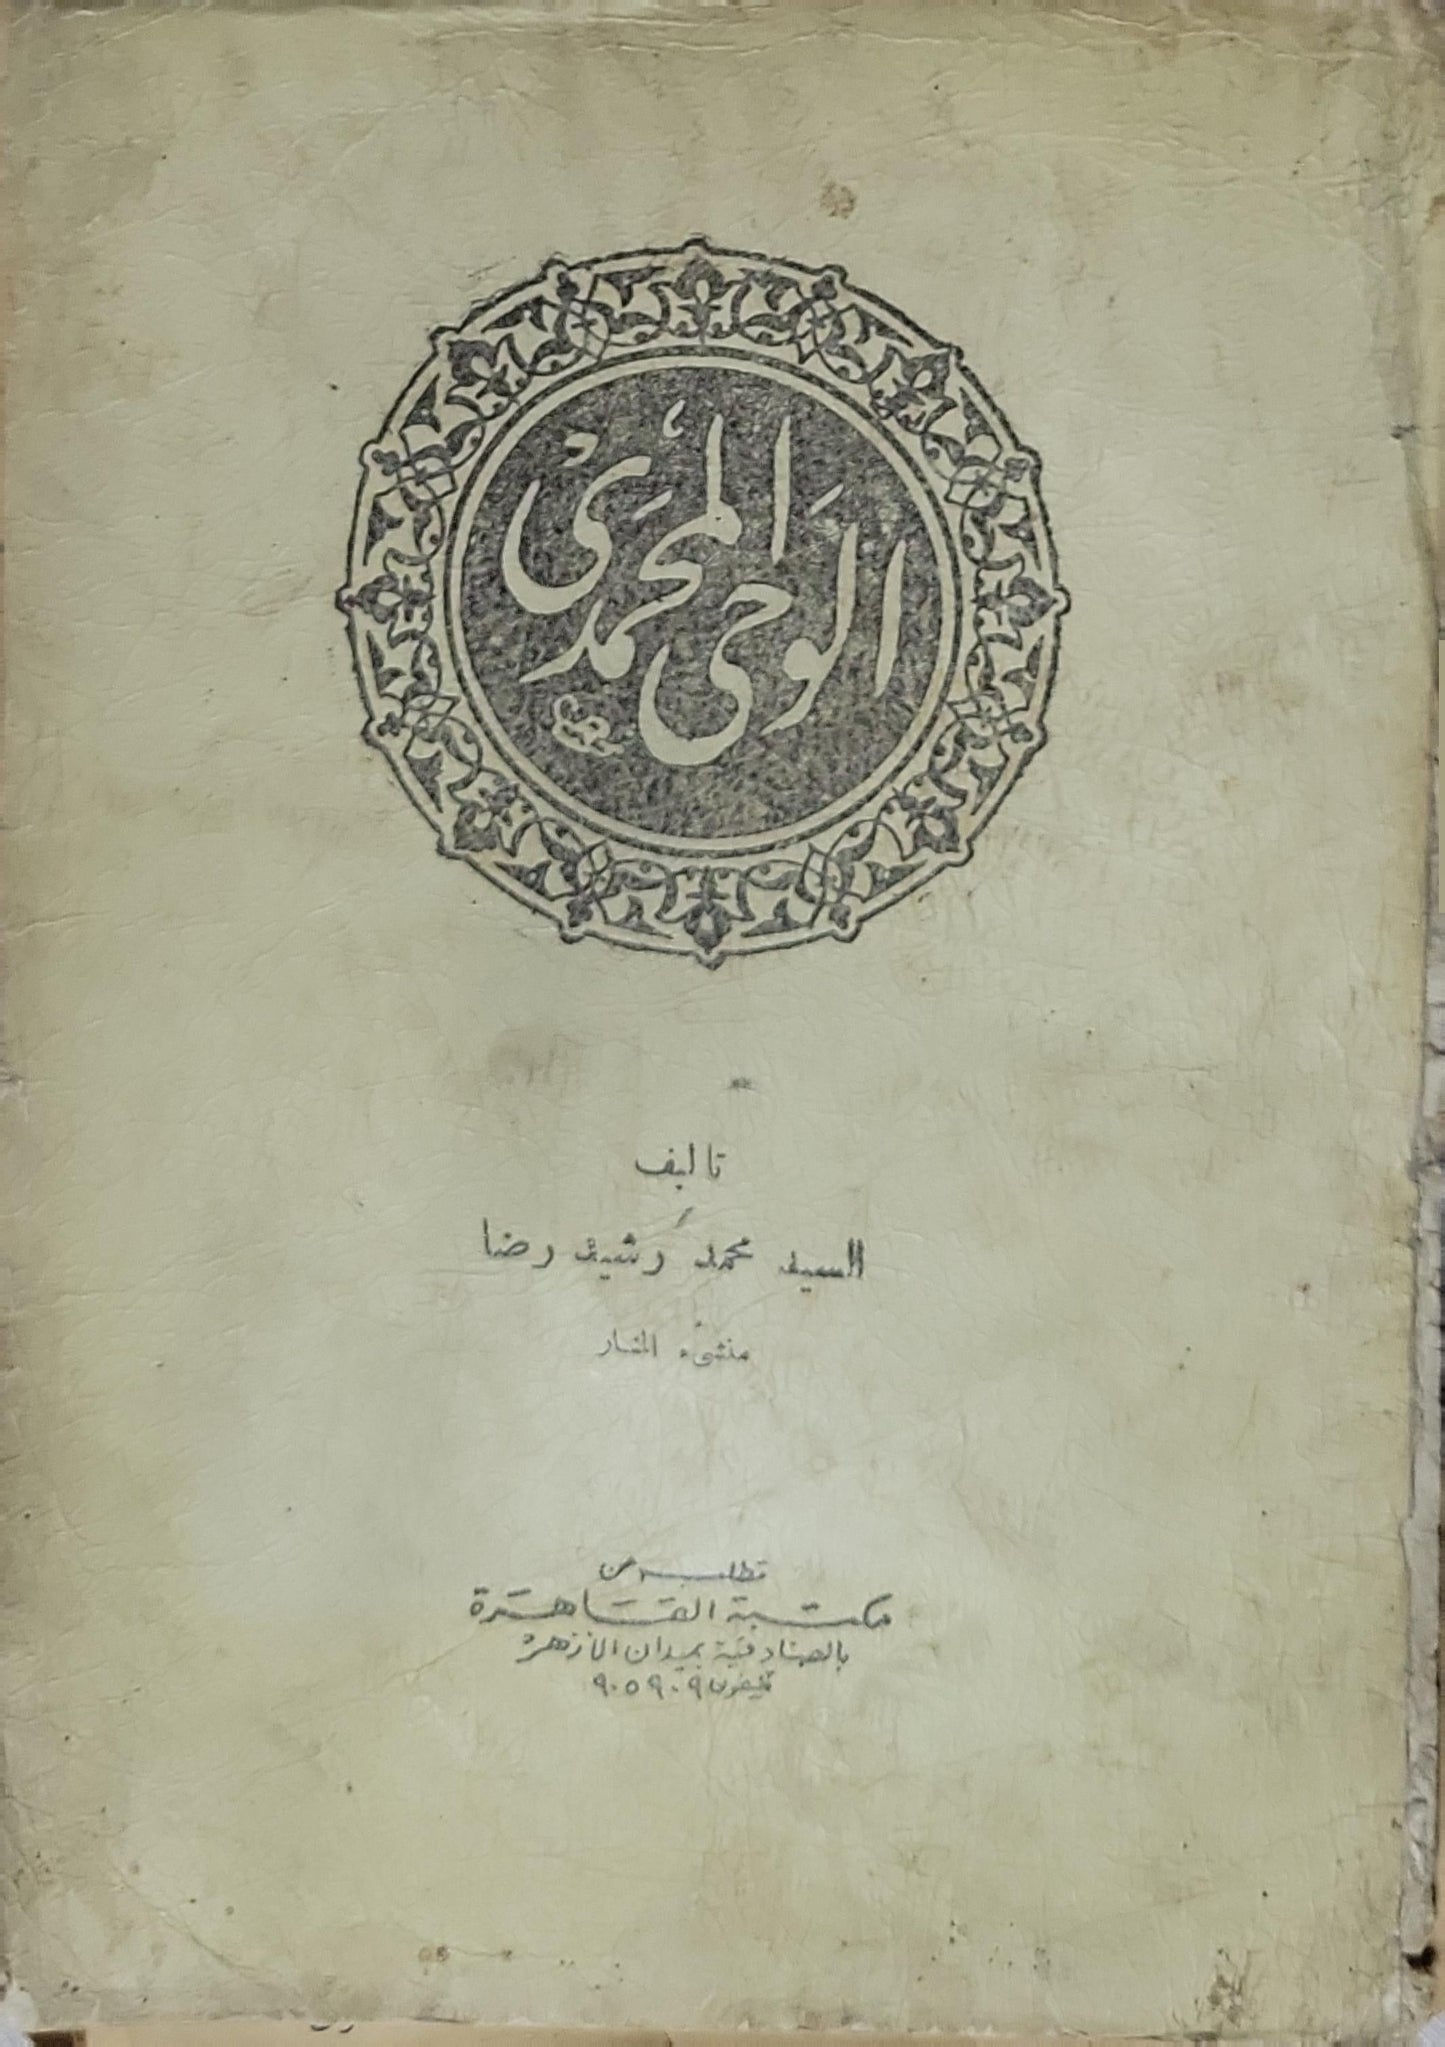 الوحي المحمدي
تأليف
السيد محمد رشيد رضا
منشىء المنار
تطلب من
مكتبة القاهرة
بالصنادقية بميدان الأزهر
تليفون ٩٠٥٩٠٩